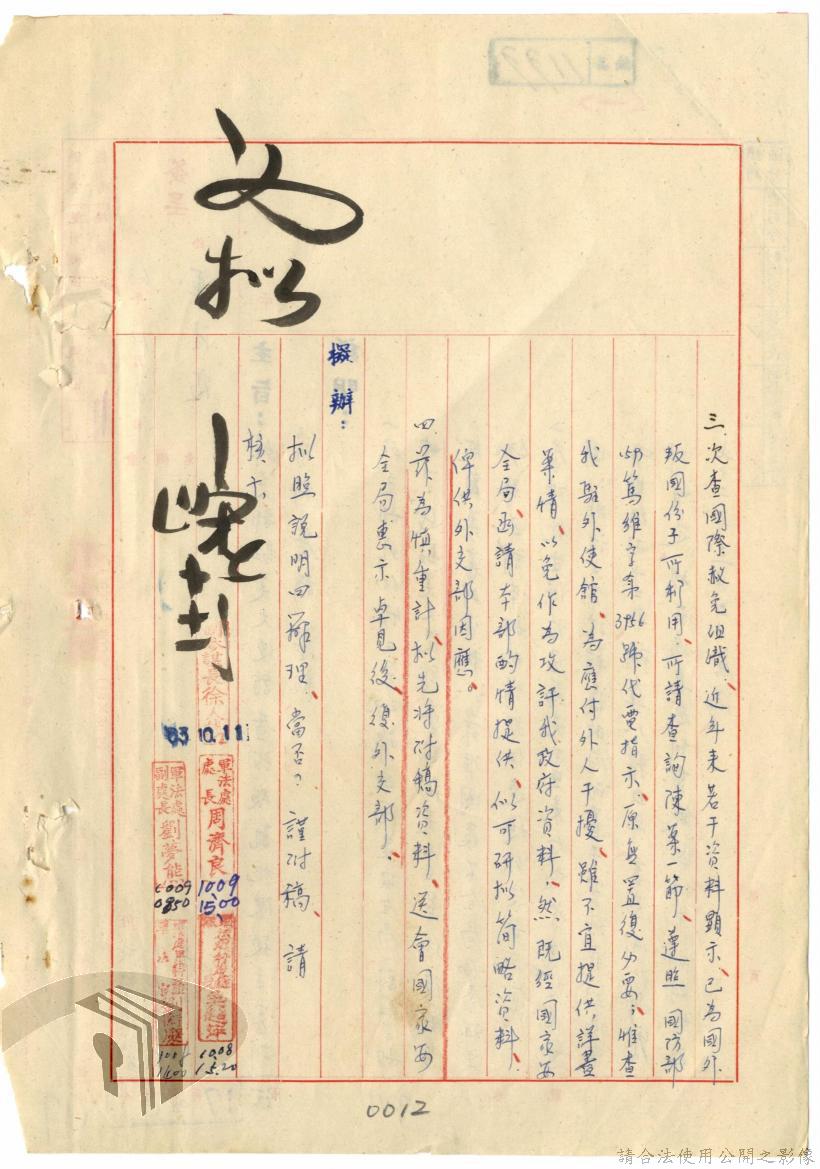 1137
三、次查國際赦免組織、近年來若干資料顯示、已為國外
叛國份子所利用、所請查詢陳案一節、遵照 國防部
篤維字第3956號代電指示、原無置復必要、惟查
我駐外使館、為應付外人干擾、雖不宜提供詳盡
案情、以免作為攻訐我政府資料、然既經國家安
全局函請本部酌情提供、似可研擬簡略資料、
俾供外交部因應。
四、茲為慎重計、擬先將附稿資料、送會國家安
全局惠示卓見後、復外交部。
擬辦：
拟照說明四辦理、當否？謹附稿、請
核示
文拟
63.10.11
軍法處處長周濟良
1009
1500
軍法處副處長劉夢熊
1009
0850
10.08
15.20
0012
請合法使用公開之影像